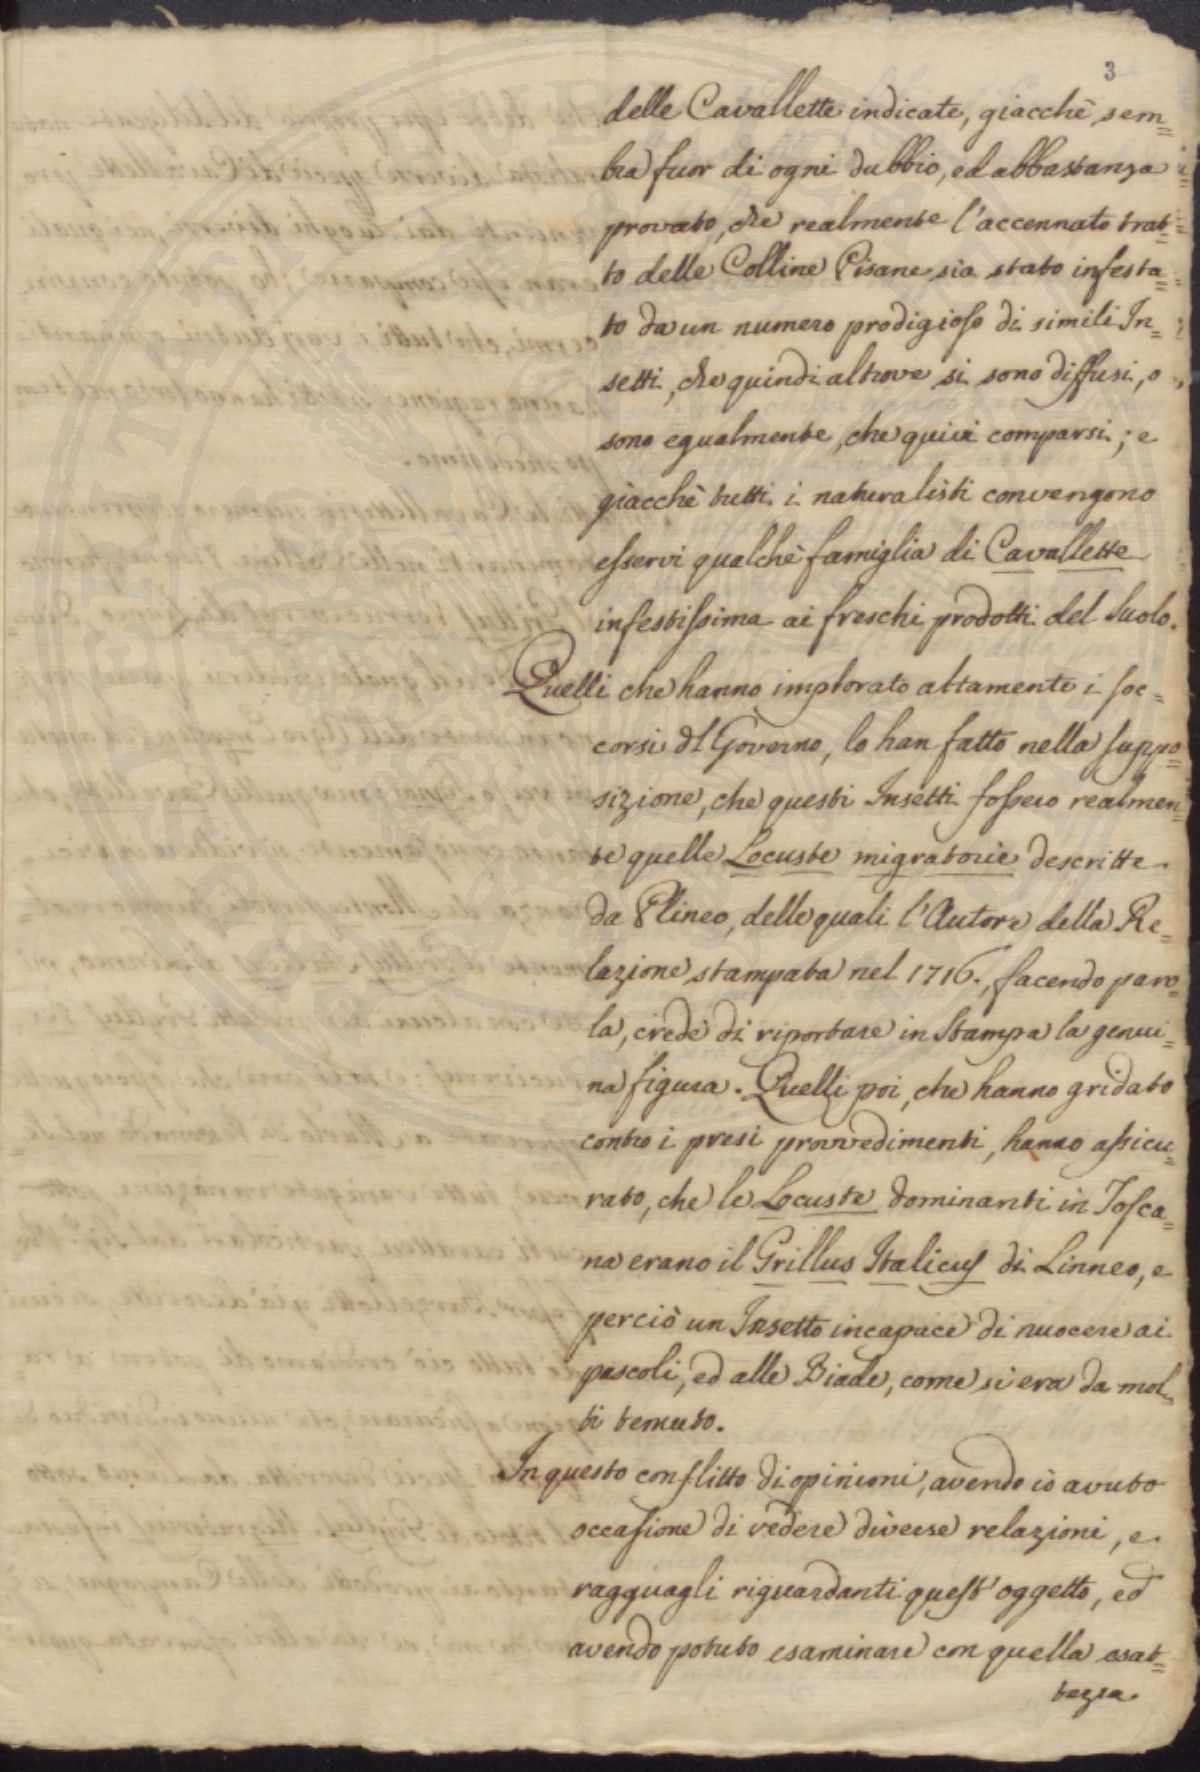 3
delle Cavallette indicate, giacchè sem=
bra fuor di ogni dubbio, ed abbastanza
provato, che realmente l'accennato trat=
to delle Colline Pisane sia stato infesta=
to da un numero prodigioso di simili In=
setti, che quindi altrove si sono diffusi, o
sono egualmente, che quivi comparsi; e
giacchè tutti i naturalisti convengono
esservi qualche famiglia di Cavallette
infestissima ai freschi prodotti del Suolo.
Quelli che hanno implorato altamente i soc=
corsi dl Governo, lo han fatto nella suppo=
sizione, che questi Insetti fossero realmen=
te quelle Locuste migratorie descritte
da Plineo, delle quali l'Autore della Re=
lazione stampata nel 1716., facendo paro=
la, credè di riportare in Stampa la genui=
na figura. Quelli poi, che hanno gridato
contro i presi provvedimenti, hanno assicu=
rato, che le Locuste dominanti in Tosca=
na erano il Grillus Italicus di Linneo, e
perciò un Insetto incapace di nuocere ai
pascoli, ed alle Biade, come si era da mol=
ti temuto.
In questo conflitto di opinioni, avendo io avuto
occasione di vedere diverse relazioni, e
ragguagli riguardanti quest'oggetto, ed
avendo potuto esaminare con quella esat=
tezza